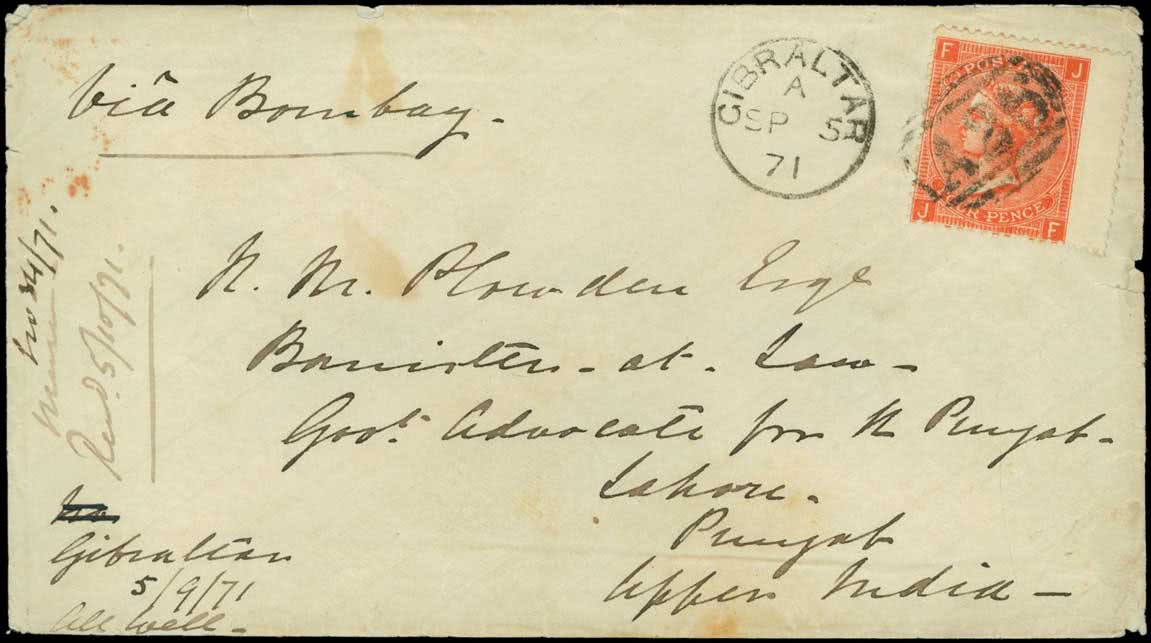 Viâ Bombay -
GIBRALTAR
A
SP 5
71
F J
POS
R PENCE
J F
A26
No 34/71.
Recd. 5/10/71.
N. M. Plowden Esqe
Barrister - at - Law -
Govt. Advocate for the Punjab -
Lahore -
Punjab
Upper India -
No.
Gibraltar
5/9/71
All well -